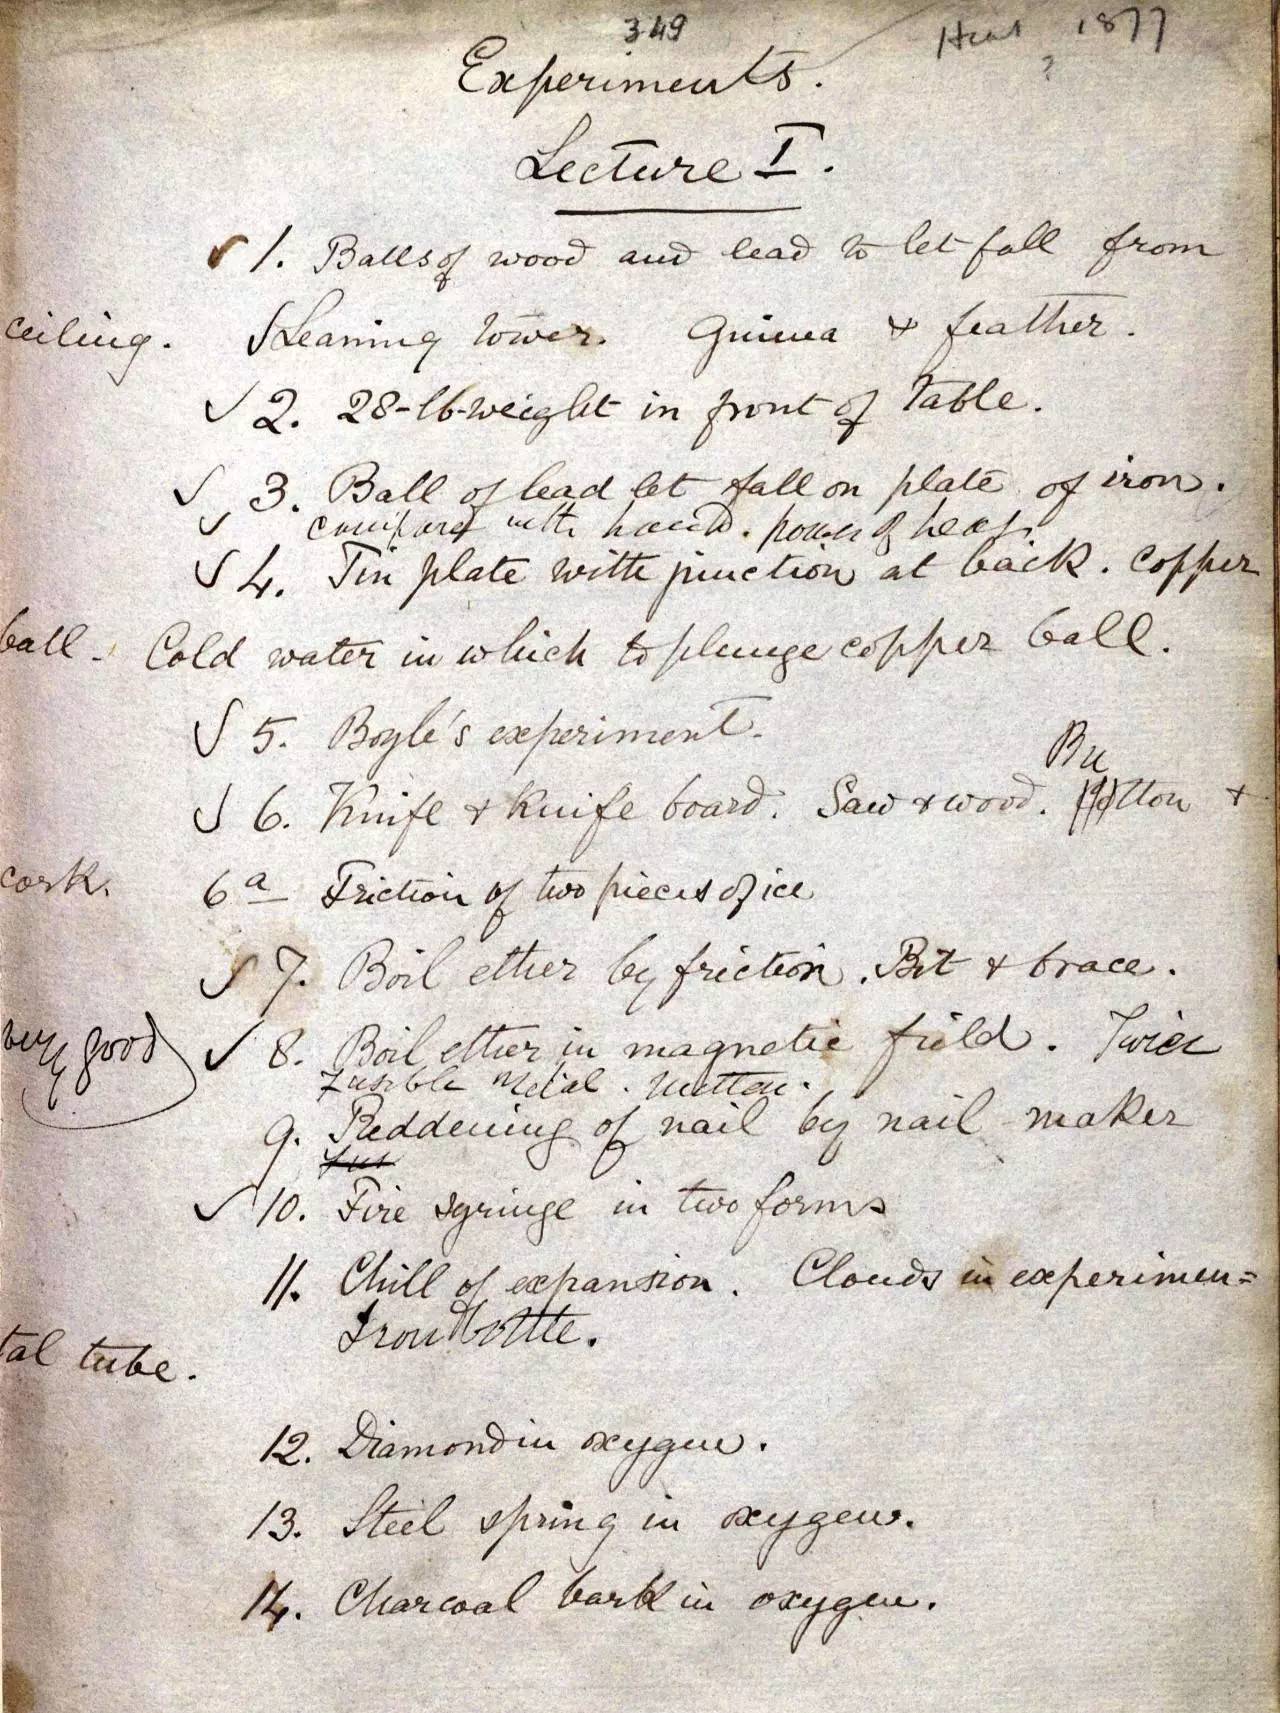 349
Heat 1877
?
Experiments.
Lecture I.
✓ 1. Balls of wood and lead to let fall from
ceiling. ✓ Leaning tower. Guinea & feather.
✓ 2. 28-lb-weight in front of table.
✓ 3. Ball of lead let fall on plate of iron.
✓ compared with hand. power of heat
✓ 4. Tin plate with junction at back. Copper
ball. Cold water in which to plunge copper ball.
✓ 5. Boyle's experiment.
Bu
✓ 6. Knife & Knife board. Saw & wood. tton &
cork.
6a Friction of two pieces of ice
✓ 7. Boil ether by friction. Bit & brace.
very good ✓ 8. Boil ether in magnetic field. Twice
Fusible Metal.
9. Reddening of nail by nail maker
Fus
✓ 10. Fire syringe in two forms
11. Chill of expansion. Clouds in experimen=
Iron bottle.
tal tube.
12. Diamond in oxygen.
13. Steel spring in oxygen.
14. Charcoal bark in oxygen.